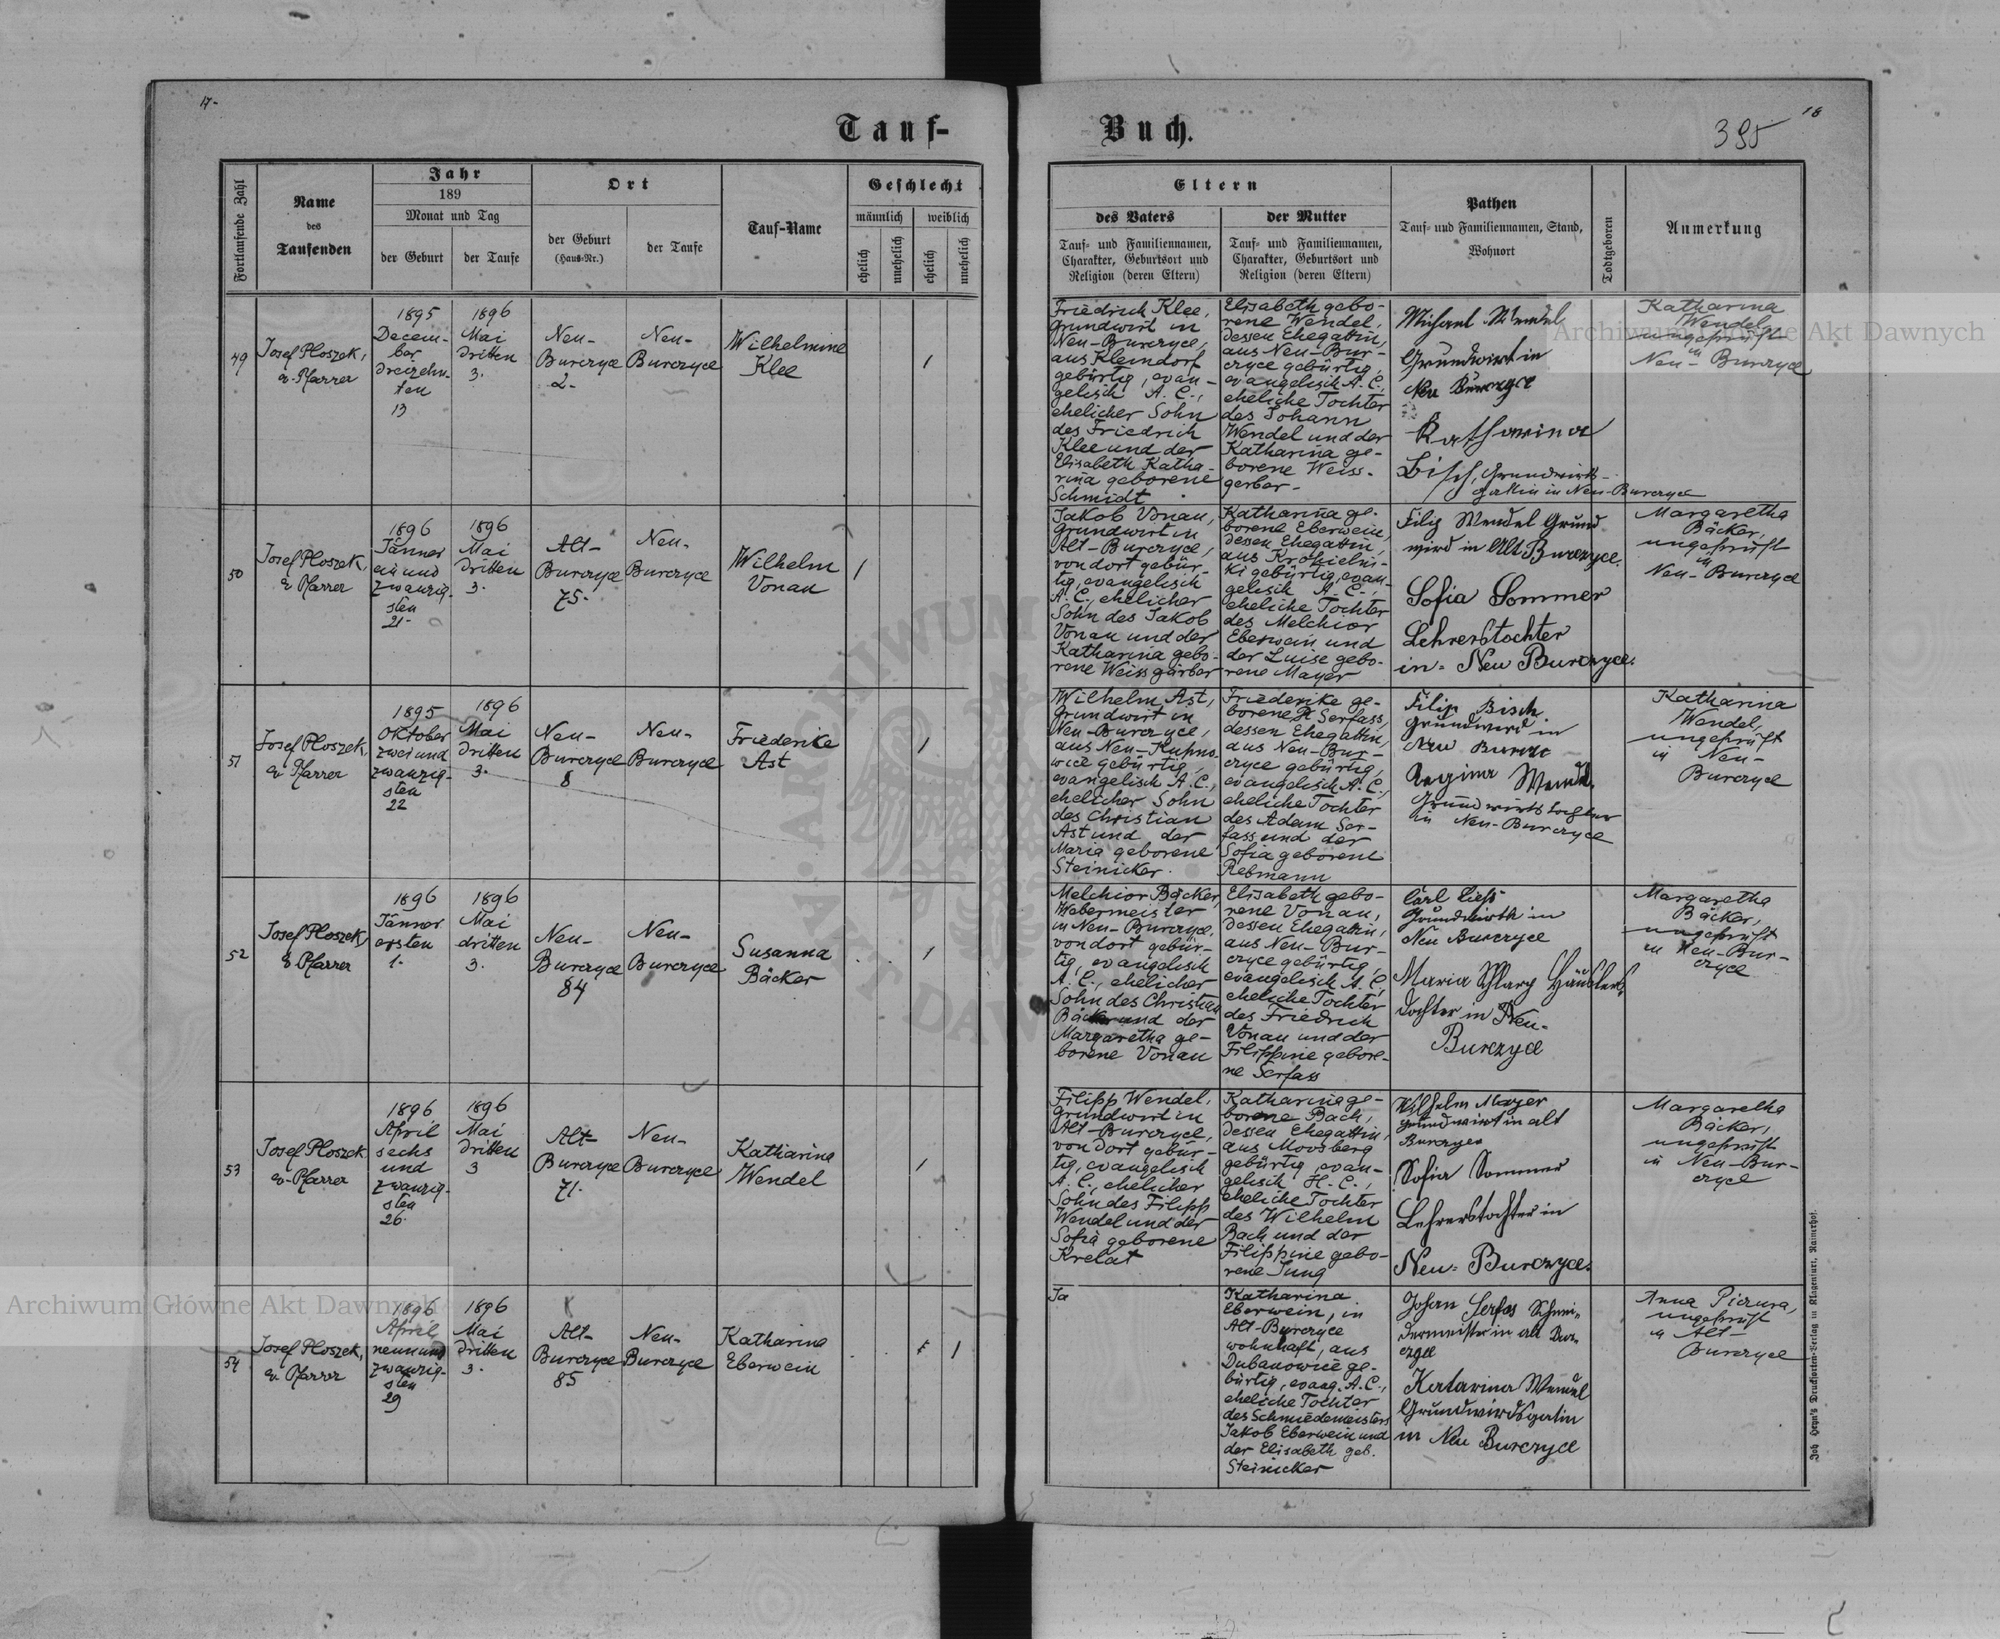 17-
18
395
Tauf-
Buch.
Fortlaufende Zahl
Name
des
Taufenden
Jahr
189
Monat und Tag
der Geburt
der Taufe
Ort
der Geburt
(Haus-Nr.)
der Taufe
Tauf-Name
Geschlecht
männlich
weiblich
ehelich
unehelich
ehelich
unehelich
Eltern
des Vaters
Tauf- und Familiennamen,
Charakter, Geburtsort und
Religion (deren Eltern)
der Mutter
Tauf- und Familiennamen,
Charakter, Geburtsort und
Religion (deren Eltern)
Pathen
Tauf- und Familiennamen, Stand,
Wohnort
Todtgeboren
Anmerkung
49
Josef Ploszek,
ev. Pfarrer
1895
Decem-
ber
dreizehn-
ten
13
1896
Mai
dritten
3.
Neu-
Burczyce
2-
Neu-
Burczyce
Wilhelmine
Klee
1
Friedrich Klee,
Grundwirt in
Neu-Burczyce,
aus Kleindorf
gebürtig, evan-
gelisch A. C.,
ehelicher Sohn
des Friedrich
Klee und der
Elisabeth Katha-
rina geborene
Schmidt.
Elisabeth gebo-
rene Wendel,
dessen Ehegattin,
aus Neu-Bur-
czyce gebürtig,
evangelisch A. C.,
eheliche Tochter
des Johann
Wendel und der
Katharina ge-
borene Weiss-
gerber-
Michael Wendel
Grundwirt in
Neu Burczyce
Katharina
Bisch, Grundwirts-
gattin in Neu-Burczyce
Katharina
Wendel
ungeprüft
in
Neu-Burczyce
50
Josef Ploszek,
ev. Pfarrer
1896
Jänner
ein und
zwanzig-
sten
21-
1896
Mai
dritten
3.
Alt-
Burczyce
75-
Neu-
Burczyce
Wilhelm
Vonau
1
Jakob Vonau,
Grundwirt in
Alt-Burczyce,
von dort gebür-
tig, evangelisch
A. C., ehelicher
Sohn des Jakob
Vonau und der
Katharina gebo-
rene Weissgärber
Katharina ge-
borene Eberwein,
dessen Ehegattin,
gebürtig, evan-
gelisch A. C.,
eheliche Tochter
des Melchior
Eberwein und
der Luise gebo-
rene Mayer
Filip Wendel Grund
wird in Alt Burczyce.
Sofia Sommer
Lehrerstochter
in- Neu Burczyce.
Margaretha
Bäcker,
ungeprüft
in
Neu-Burczyce
51
Josef Ploszek,
ev. Pfarrer
1895
Oktober
zwei und
zwanzig-
sten
22
1896
Mai
dritten
3.
Neu-
Burczyce
8
Neu-
Burczyce
Friederike
Ast
1
Wilhelm Ast,
Grundwirt in
Neu-Burczyce,
aus Neu-Kupno-
wice gebürtig,
evangelisch A. C.,
ehelicher Sohn
des Christian
Ast und der
Maria geborene
Steinicker.
Friederike ge-
borene Serfass,
dessen Ehegattin,
aus Neu-Bur-
czyce gebürtig,
evangelisch A. C.,
eheliche Tochter
des Adam Ser-
fass und der
Sofia geborene
Rebmann
Filip Bisch
Grundwird in
Neu Burczce
Regina Wendel
Grundwirts tochter
in Neu-Burczyce
Katharina
Wendel,
ungeprüft
in Neu-
Burczyce
52
Josef Ploszek,
ev. Pfarrer
1896
Jänner
ersten
1.
1896
Mai
dritten
3.
Neu-
Burczyce
84
Neu-
Burczyce
Susanna
Bäcker
1
Melchior Bäcker,
Webermeister
in Neu-Burczyce,
von dort gebür-
tig, evangelisch
A. C., ehelicher
Sohn des Christian
Bäcker und der
Margaretha ge-
borene Vonau
Elisabeth gebo-
rene Vonau,
dessen Ehegattin,
aus Neu-Bur-
czyce gebürtig,
evangelisch A. C.,
eheliche Tochter
des Friedrich
Vonau und der
Filippine gebore-
ne Serfass
Carl
Grundwirth in
Neu Burczyce
Maria Schlarp Häuslers
dochter in Neu-
Burczyce
Margaretha
Bäcker,
ungeprüft
in Neu-Bur-
czyce
53
Josef Ploszek
ev. Pfarrer
1896
April
sechs
und
zwanzig-
sten
26.
1896
Mai
dritten
3
Alt-
Burczyce
71.
Neu-
Burczyce
Katharina
Wendel
1
Filipp Wendel,
Grundwirt in
Alt-Burczyce,
von dort gebür-
tig, evangelisch
A. C., ehelicher
Sohn des Filipp
Wendel und der
Sofia geborene
Krelat
Katharina ge-
borene Bach,
dessen Ehegattin,
aus Moosberg
gebürtig, evan-
gelisch H. C.,
eheliche Tochter
des Wilhelm
Bach und der
Filippine gebo-
rene Jung
Wilhelm Mayer
Grundwirt in alt
Burczyce
Sofia Sommer
Lehrerstochter in
Neu-Burczyce.
Margaretha
Bäcker,
ungeprüft
in Neu-Bur-
czyce
54
Josef Ploszek,
ev. Pfarrer
1896
April
neun und
zwanzig-
sten
29
1896
Mai
dritten
3.
Alt-
Burczyce
85
Neu-
Burczyce
Katharina
Eberwein
1
Ja
Katharina
Eberwein, in
Alt-Burczyce
wohnhaft, aus
Dubanowice ge-
bürtig, evang. A. C.,
eheliche Tochter
des Schmiedemeisters
Jakob Eberwein und
der Elisabeth geb.
Steinicker
Johan Serfas Schnei-
dermeister in alt Bur-
czyce
Katarina Wendel
Grundwirdsgatin
in Neu Burczyce
Anna
ungeprüft
in Alt-
Burczyce
Joh Heyn's Drucksorten-Verlag in Klagenfurt, Rainerhof.
Archiwum Główne Akt Dawnych
Archiwum Główne Akt Dawnych